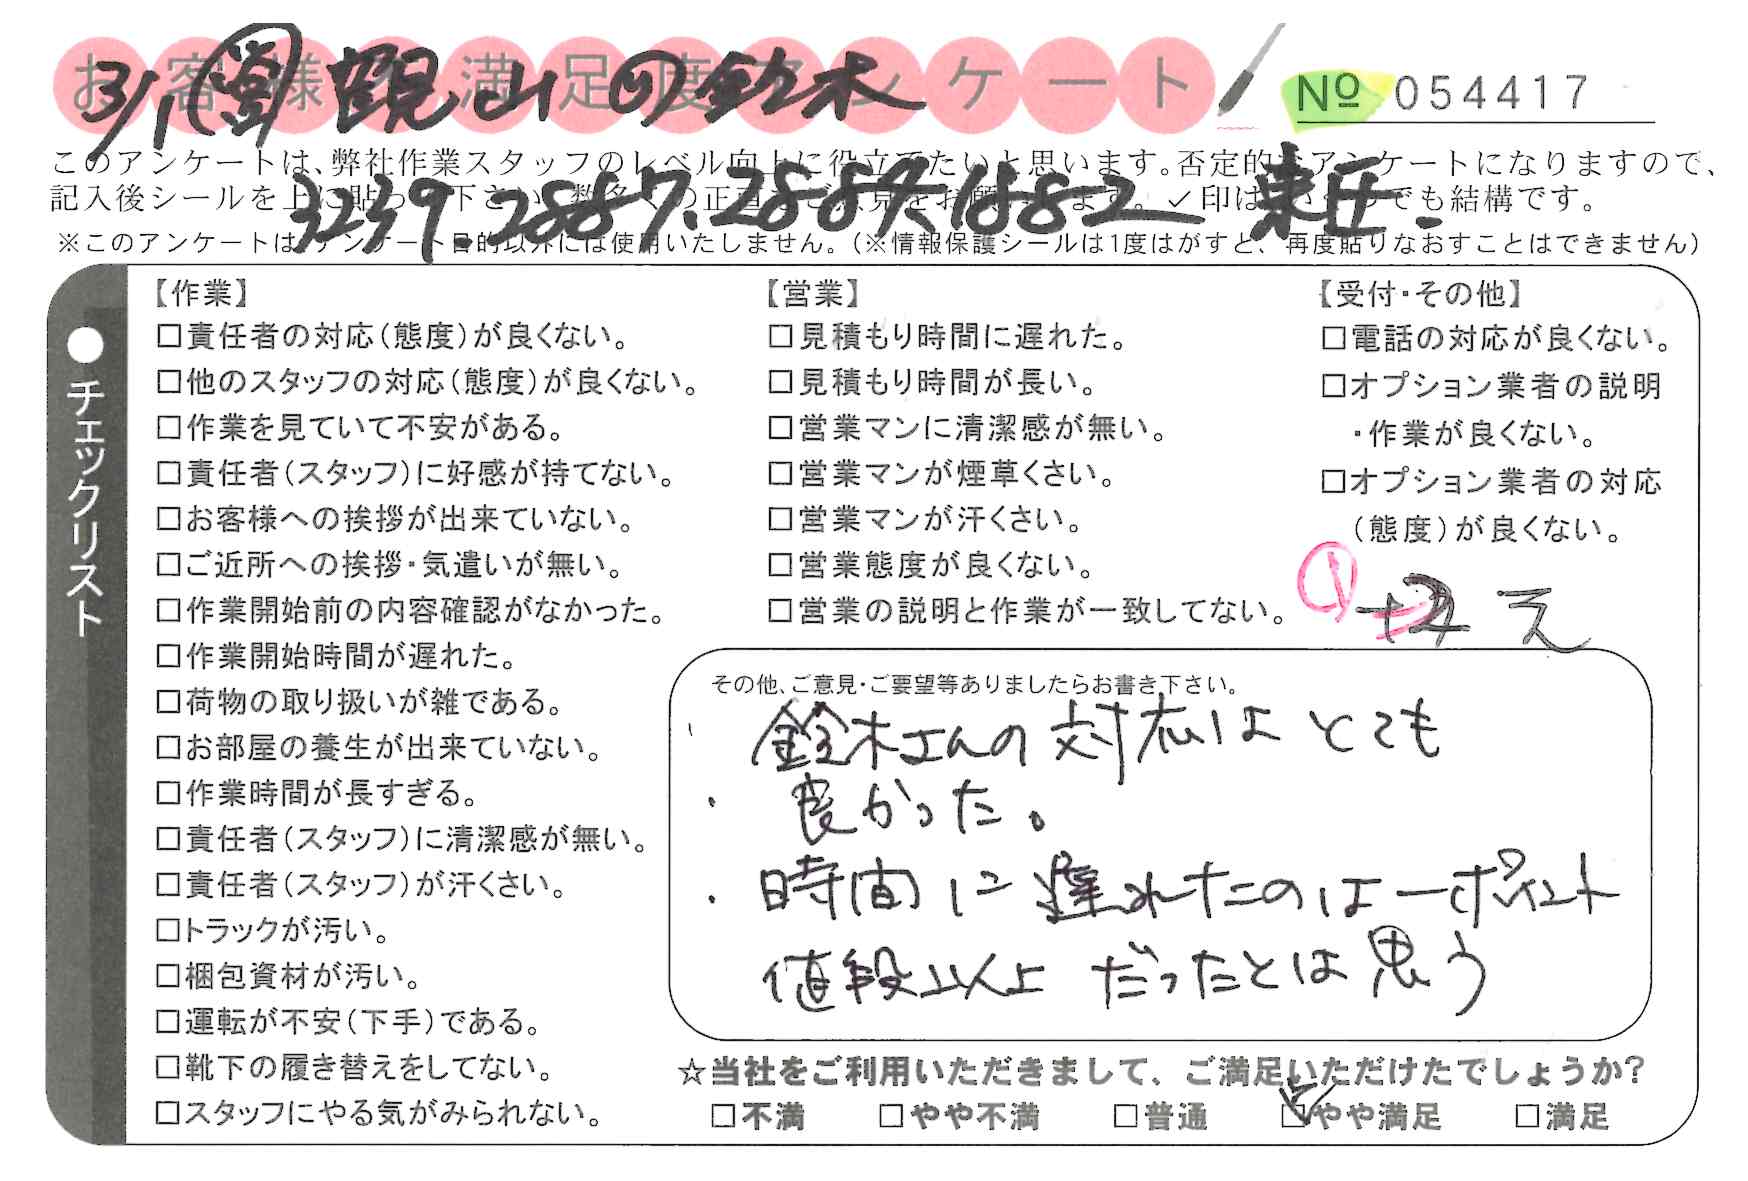 お客様の満足度アンケート
3/1 (営) 観山の鈴木
Nº 054417
このアンケートは、弊社作業スタッフのレベル向上に役立てたいと思います。否定的なアンケートになりますので、
記入後シールを上に貼って下さい。数多くの正直なご意見をお願いします。✓印はいくつでも結構です。
3239.2887.2884.1882
※このアンケートはアンケート目的以外には使用いたしません。（※情報保護シールは1度はがすと、再度貼りなおすことはできません）
●チェックリスト
【作業】
□責任者の対応（態度）が良くない。
□他のスタッフの対応（態度）が良くない。
□作業を見ていて不安がある。
□責任者（スタッフ）に好感が持てない。
□お客様への挨拶が出来ていない。
□ご近所への挨拶・気遣いが無い。
□作業開始前の内容確認がなかった。
□作業開始時間が遅れた。
□荷物の取り扱いが雑である。
□お部屋の養生が出来ていない。
□作業時間が長すぎる。
□責任者（スタッフ）に清潔感が無い。
□責任者（スタッフ）が汗くさい。
□トラックが汚い。
□梱包資材が汚い。
□運転が不安（下手）である。
□靴下の履き替えをしてない。
□スタッフにやる気がみられない。
【営業】
□見積もり時間に遅れた。
□見積もり時間が長い。
□営業マンに清潔感が無い。
□営業マンが煙草くさい。
□営業マンが汗くさい。
□営業態度が良くない。
□営業の説明と作業が一致してない。
【受付・その他】
□電話の対応が良くない。
□オプション業者の説明
・作業が良くない。
□オプション業者の対応
（態度）が良くない。
①
その他、ご意見・ご要望等ありましたらお書き下さい。
鈴木さんの対応はとても
良かった。
・時間に遅れたのは一ポイント
値段以上だったとは思う
☆当社をご利用いただきまして、ご満足いただけたでしょうか？
□不満 □やや不満 □普通 ☑やや満足 □満足